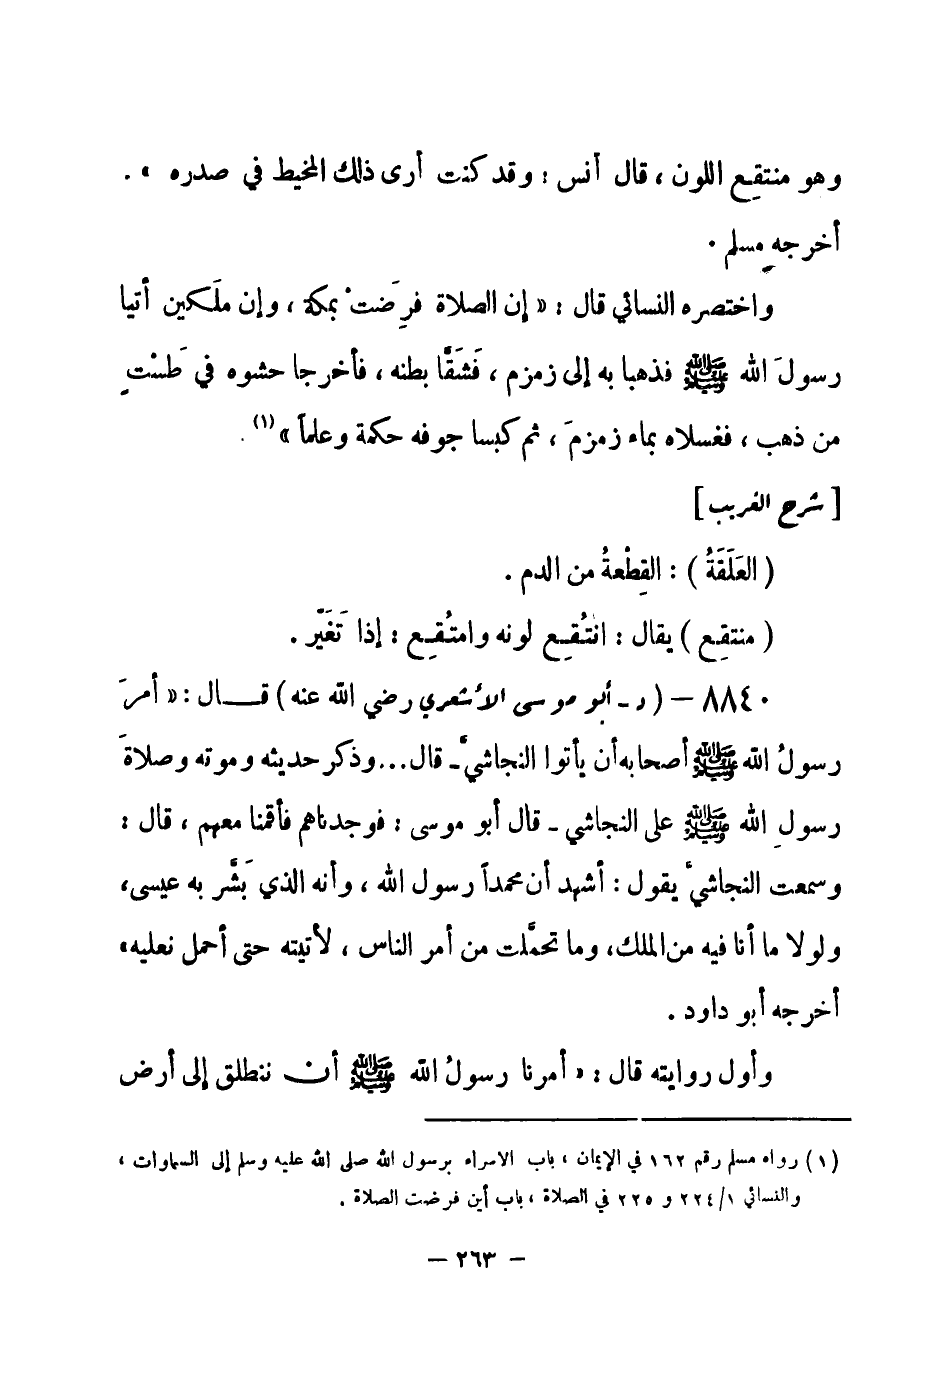 وهو منتقِع اللون ، قال أنس : وقد كنت أرى ذلك المخيط في صدره » .
أخرجه مسلم .
واختصره النسائي قال : « إن الصلاة فرِضَتْ بمكة ، وإن ملَكين أتيا
رسولَ الله ﷺ فذهبا به إلى زمزم ، فَشَقَّا بطنه ، فأخرجا حشوه في طَسْتٍ
من ذهب ، فغسلاه بماء زمزمَ ، ثم كبسا جوفه حكمة وعلماً » (١) .
[ شرح الغريب ]
( العَلَقَةُ ) : القِطْعةُ من الدم .
( منتقِع ) يقال : انتُقِع لونه وامتُقِع : إذا تَغَيَّر .
٨٨٤٠ — ( د - أبو موسى الأشعري رضي الله عنه ) قال : « أمرَ
رسولُ الله ﷺ أصحابه أن يأتوا النجاشيَّ - قال ... وذكر حديثه وموته وصلاةَ
رسولِ الله ﷺ على النجاشي - قال أبو موسى : فوجدناهم فأقمنا معهم ، قال :
وسمعت النجاشيَّ يقول : أشهد أن محمداً رسول الله ، وأنه الذي بَشَّر به عيسى،
ولولا ما أنا فيه من الملك، وما تحمَّلت من أمر الناس ، لأتيته حتى أحمل نعليه»
أخرجه أبو داود .
وأول روايته قال : « أمرنا رسولُ الله ﷺ أن ننطلق إلى أرض
(١) رواه مسلم رقم ١٦٢ في الإيمان ، باب الاسراء برسول الله صلى الله عليه وسلم إلى السماوات ،
والنسائي ٢٢٤/١ و ٢٢٥ في الصلاة ، باب أين فرضت الصلاة .
— ٢٦٣ —